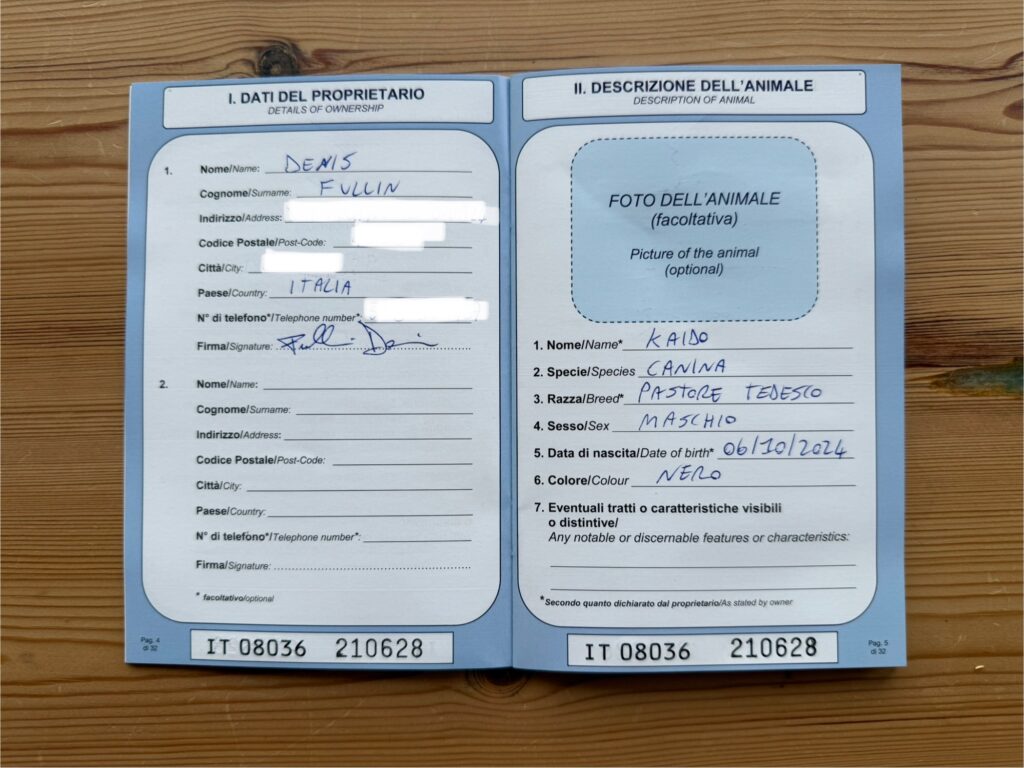 I. DATI DEL PROPRIETARIO
DETAILS OF OWNERSHIP
1.
Nome/Name: DENIS
Cognome/Surname: FULLIN
Indirizzo/Address:
Codice Postale/Post-Code:
Città/City:
Paese/Country: ITALIA
N° di telefono*/Telephone number*:
Firma/Signature: Fullin Denis
2.
Nome/Name:
Cognome/Surname:
Indirizzo/Address:
Codice Postale/Post-Code:
Città/City:
Paese/Country:
N° di telefono*/Telephone number*:
Firma/Signature:
* facoltativo/optional
Pag. 4
di 32
IT 08036 210628
II. DESCRIZIONE DELL'ANIMALE
DESCRIPTION OF ANIMAL
FOTO DELL'ANIMALE
(facoltativa)
Picture of the animal
(optional)
1. Nome/Name* KAIDO
2. Specie/Species CANINA
3. Razza/Breed* PASTORE TEDESCO
4. Sesso/Sex MASCHIO
5. Data di nascita/Date of birth* 06/10/2024
6. Colore/Colour NERO
7. Eventuali tratti o caratteristiche visibili
o distintive/
Any notable or discernable features or characteristics:
*Secondo quanto dichiarato dal proprietario/As stated by owner
IT 08036 210628
Pag. 5
di 32